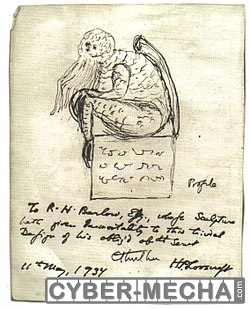 Profile
To R. H. Barlow, Esq., whose Sculpture
hath given Immortality to this trivial
Design of his oblig'd obt Servt
Cthulhu HPLovecraft
11th May, 1934
CYBER-MECHA.COM